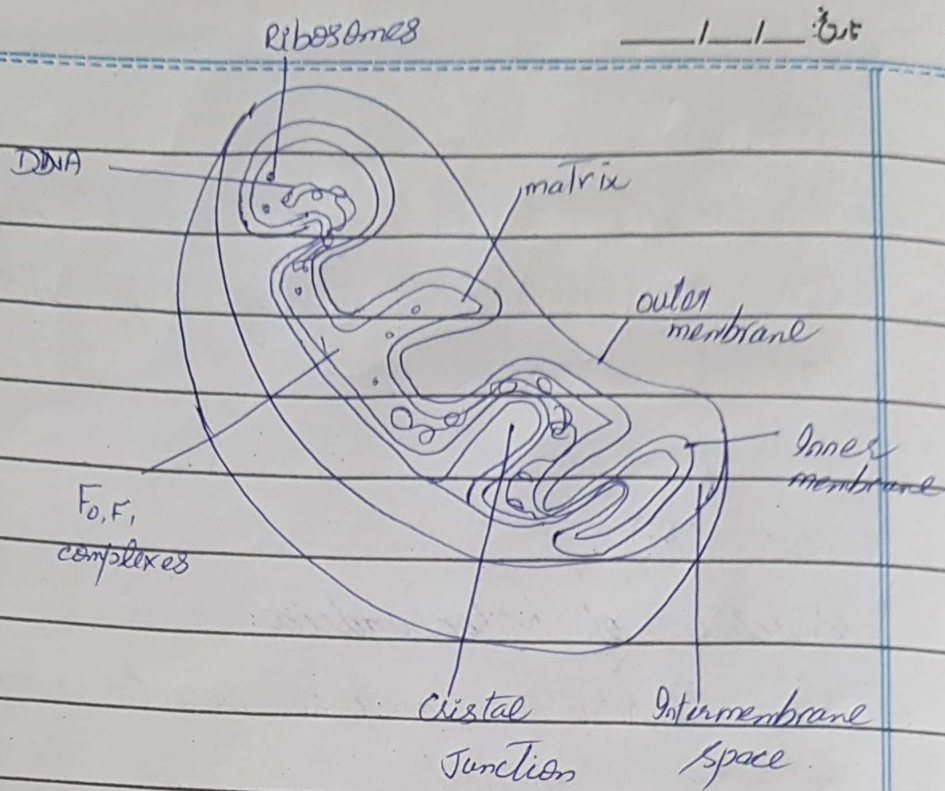 Ribosomes
__/__/__
DNA
matrix
outer
membrane
Inner
membrane
F₀,F₁
complexes
Cristal
Junction
Intermembrane
space